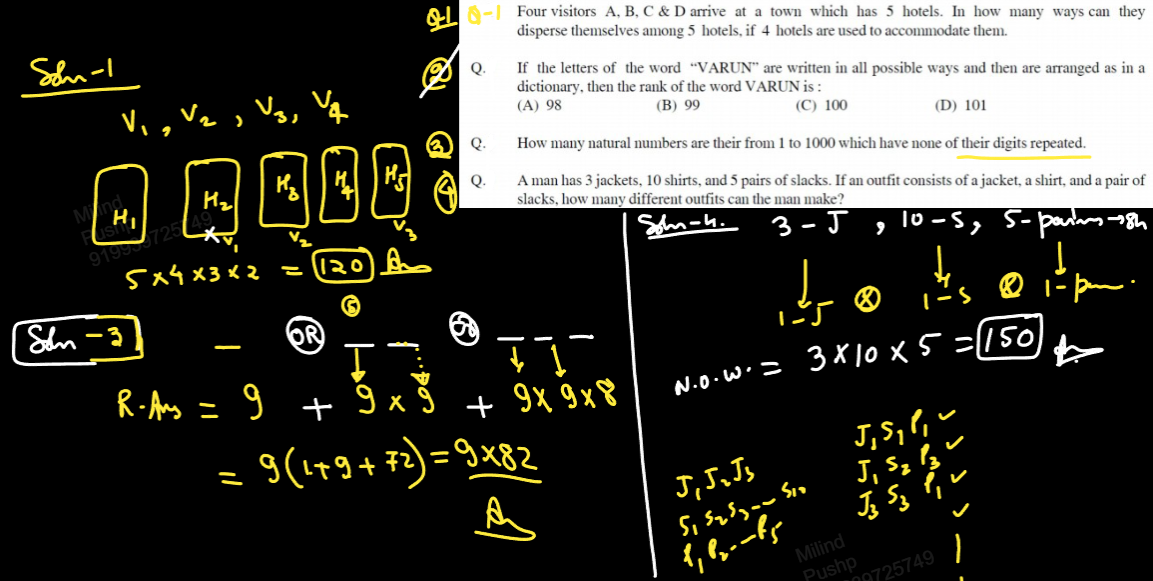 Q1 Q-1 Four visitors A, B, C & D arrive at a town which has 5 hotels. In how many ways can they
disperse themselves among 5 hotels, if 4 hotels are used to accommodate them.
② Q. If the letters of the word “VARUN” are written in all possible ways and then are arranged as in a
dictionary, then the rank of the word VARUN is :
(A) 98 (B) 99 (C) 100 (D) 101
③ Q. How many natural numbers are their from 1 to 1000 which have none of their digits repeated.
④ Q. A man has 3 jackets, 10 shirts, and 5 pairs of slacks. If an outfit consists of a jacket, a shirt, and a pair of
slacks, how many different outfits can the man make?
Soln-1
V₁, V₂, V₃, V₄
H₁ H₂ H₃ H₄ H₅
V₁ V₂ V₃
5×4×3×2 = 120 Ans
⑤
Soln-3
_ OR _ _ OR _ _ _
R.Ans = 9 + 9×9 + 9×9×8
= 9(1+9+72) = 9×82
Soln-4. 3-J, 10-S, 5-pairs→
1-J ⊗ 1-S ⊗ 1-
N.O.W. = 3×10×5 = 150
J₁ J₂ J₃
S₁ S₂ S₃ -- S₁₀
P₁ P₂ -- P₅
J₁ S₁ P₁ ✓
J₁ S₂ P₃ ✓
J₃ S₃ P₁ ✓
✓
Milind
Pushp
919939725749
Milind
Pushp
9725749